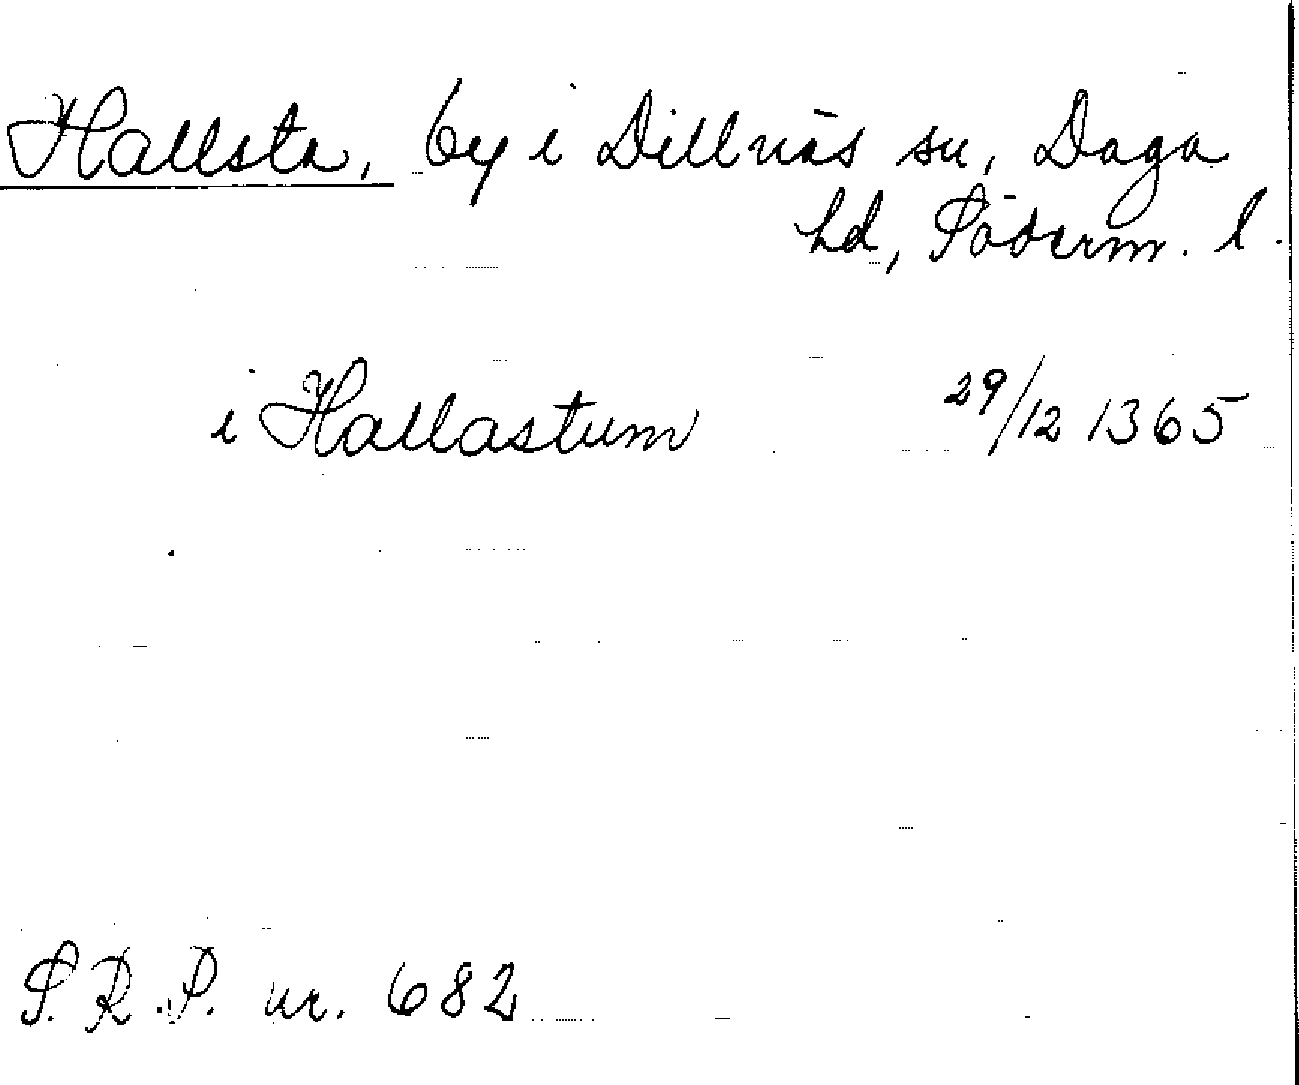 Hallsta, by i Dillnäs sn, Daga
hd, Söderm. l.
i Hallastum 29/12 1365
S.R.P. nr. 682